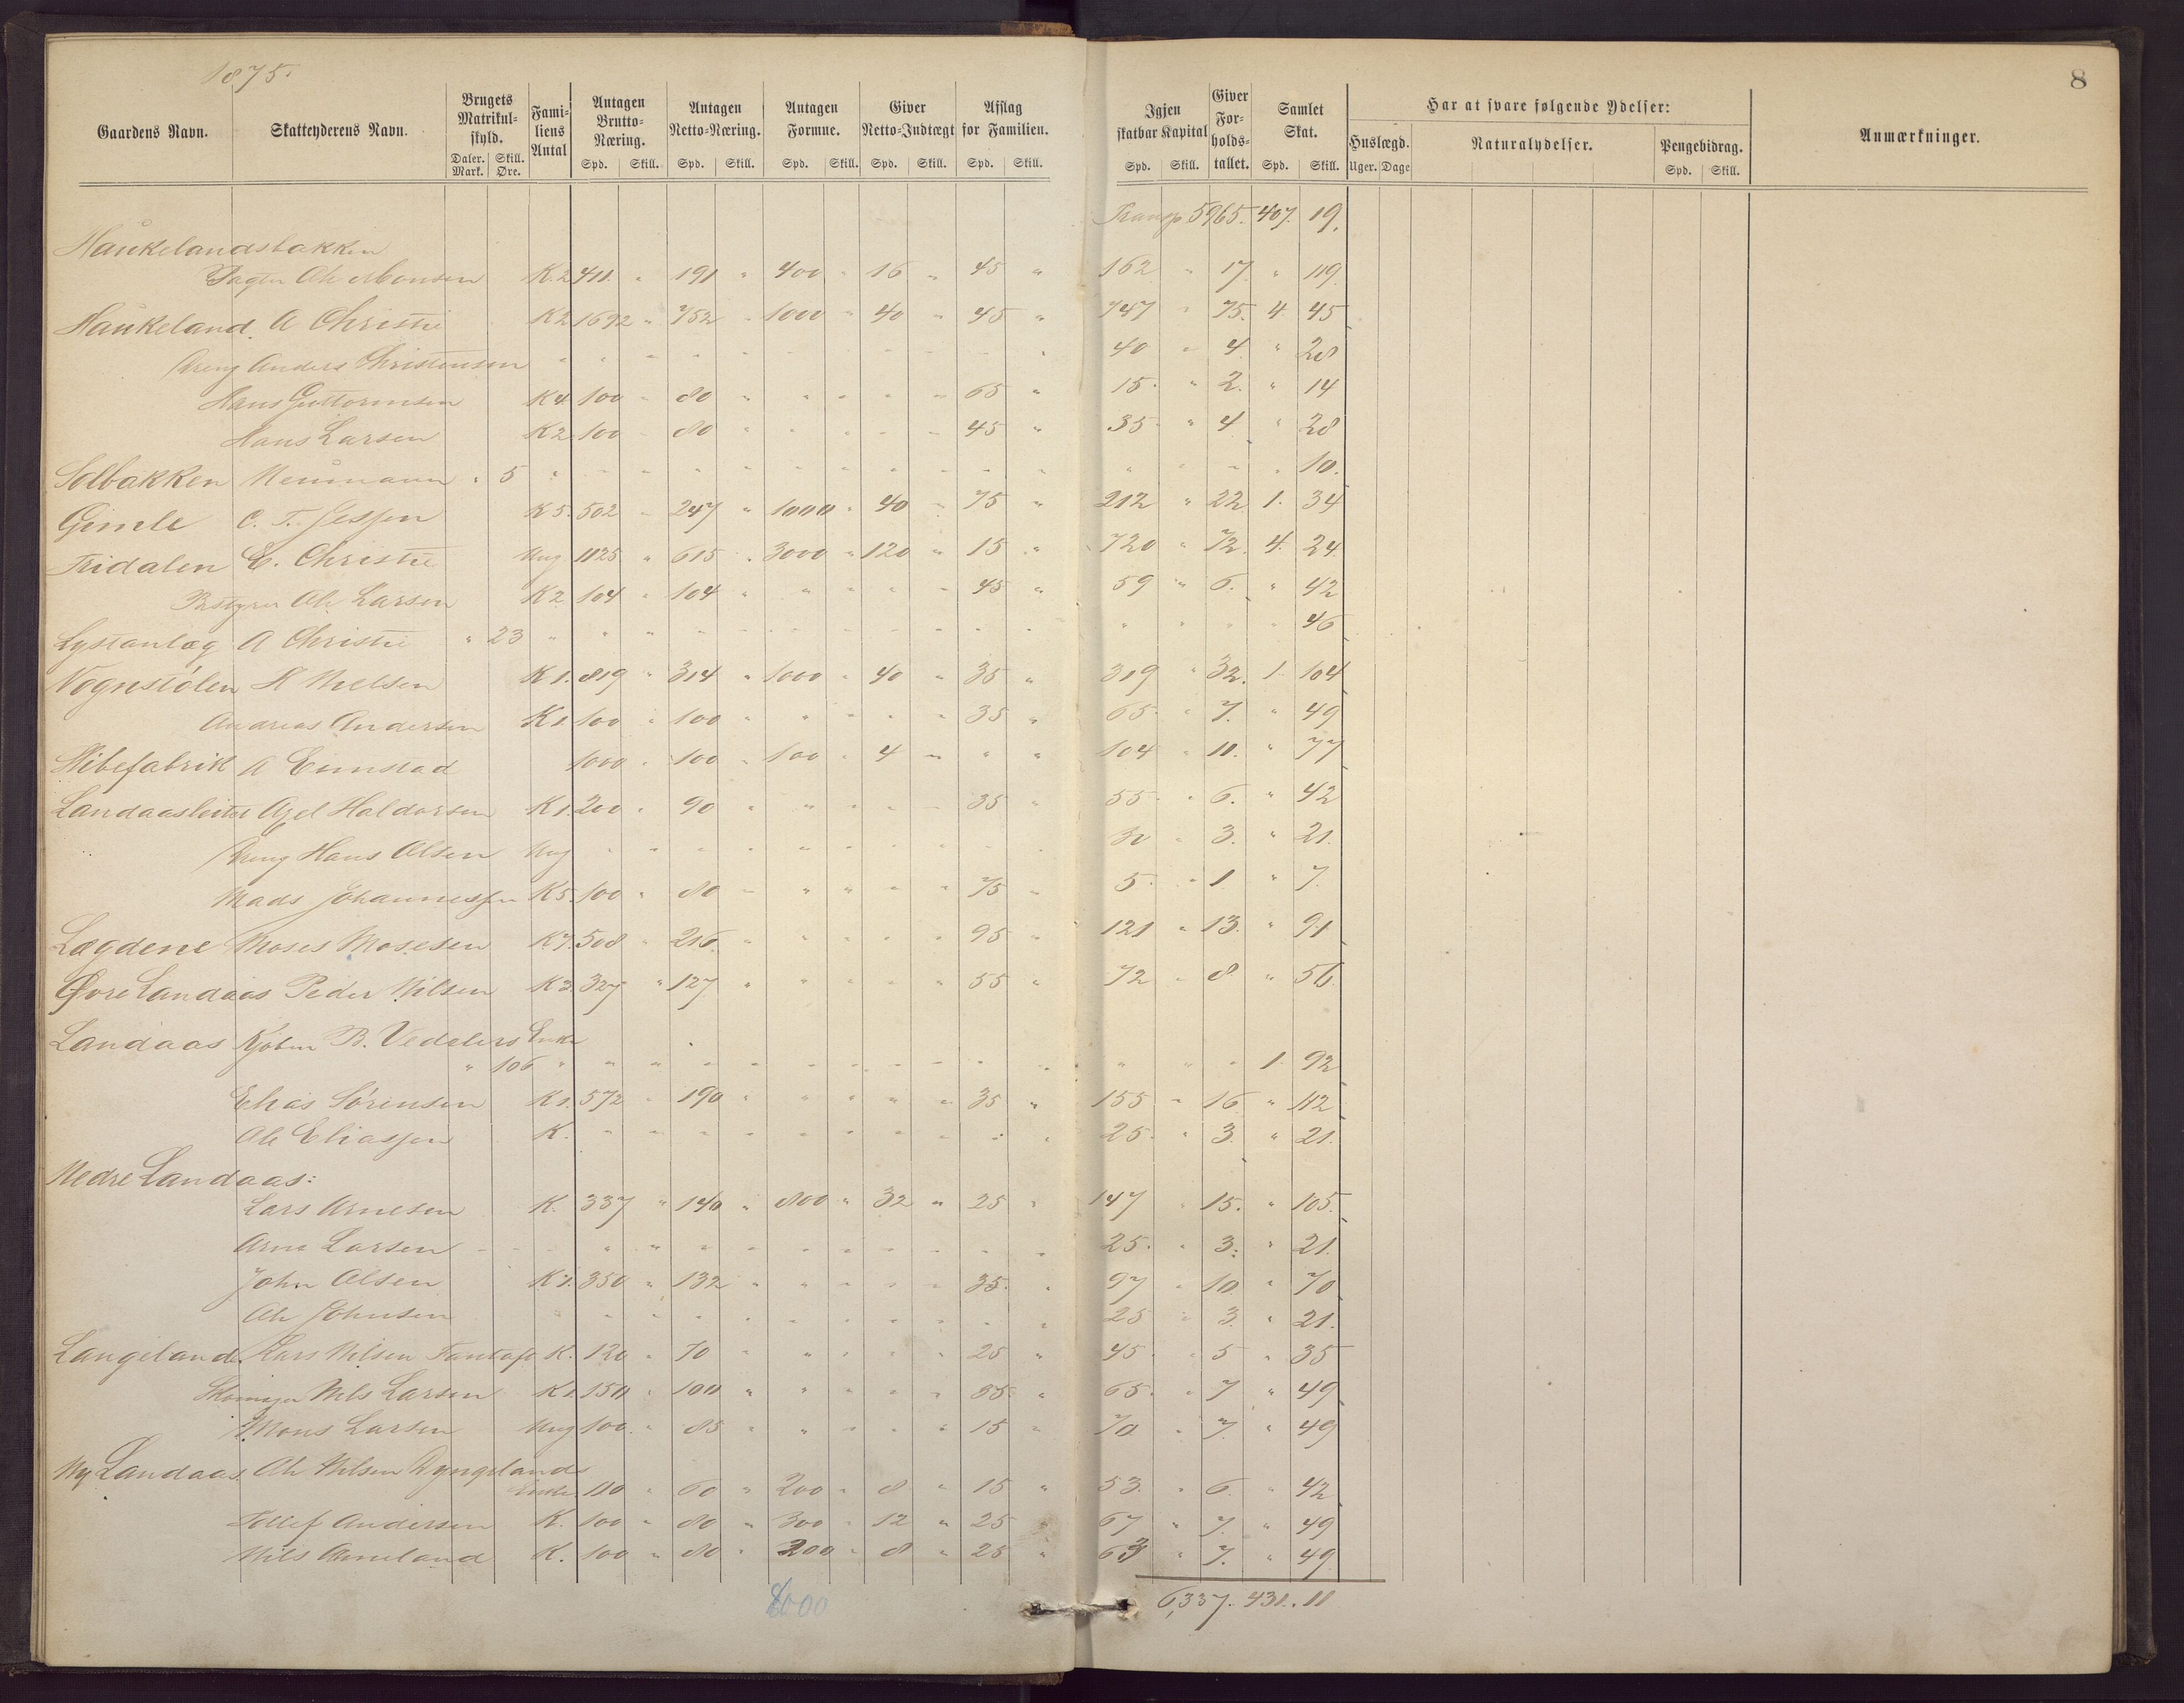 1875.
8
Gaardens Navn. Skatteyderens Navn. Brugets Matrikul-skyld. Daler. Mark. Skill. Øre. Fami-liens Antal Antagen Brutto-Næring. Spd. Skill. Antagen Netto-Næring. Spd. Skill. Antagen Formue. Spd. Skill. Giver Netto-Indtægt Spd. Skill. Afslag for Familien. Spd. Skill. Igjen skatbar Kapital Spd. Skill. Giver For-holds-tallet. Samlet Skat. Spd. Skill. Har at svare følgende Ydelser: Huslægd. Uger. Dage Naturalydelser. Pengebidrag. Spd. Skill. Anmærkninger.
Transp 5965. 407. 19.
Haukelandsbakken
Ole Monsen K. 2 411 " 191 " 400 " 16 " 45 " 162 " 17. " 119.
Haukeland A Christie K 2 1692 " 752 " 1000 " 40 " 45 " 747 " 75. 4 45
Dreng Anders Christensen " " " " " " " " " 40 " 4 " 28
Hans Guttormsen K 4. 100 " 80 " " " " " 65 " 15. " 2. " 14
Hans Larsen K 2 100 " 80 " " " " " 45 " 35 " 4 " 28
Solbakken Neumann " 5 " " " " " " " " " " " " " " " 10.
Gimle C. T. Jessen K 5. 502 " 247 " 1000 " 40 " 75 " 212 " 22 1. 34
Fridalen E. Christie Ung 1125 " 615 " 3000 " 120 " 15 " 720 " 72. 4. 24.
Bestyrer Ole Larsen K 2 104 " 104 " " " " " 45 " 59 " 6. " 42
Lystanlæg A Christie " 23 " " " " " " " " " " " " " " " 46
Vognstølen H Nielsen K 1. 819 " 314 " 1000 " 40 " 35 " 319 " 32. 1. 104
Andreas Andersen K 1 100 " 100 " " " " " 35 " 65 " 7. " 49
Stibefabrik A Eimstad 1000 " 100 " 100 " 4 " " " 104 " 11. " 77
Landaasleitet Agel Haldorsen K 1. 200 " 90 " " " " " 35 " 55 " 6. " 42
Dreng Hans Olsen Ung " " " " " " " " " " 30 " 3. " 21.
Mads Johannessen K 5. 100 " 80 " " " " " 75 " 5. " 1 " 7.
Lægdene Moses Mosesen K 7. 508 " 216. " " " " " 95 " 121 " 13. " 91
Øvre Landaas Peder Nilsen K 3. 327 " 127 " " " " " 55 " 72 " 8 " 56.
Landaas Kjøbm B. Vedelers Enke
" 106 " " " " " " " " " " " " " " 1. 92
Elias Sørensen K 1. 572 " 190 " " " " " 35 " 155 " 16 " 112
Ole Eliassen K. " " " " " " " " " " 25. " 3. " 21.
Nedre Landaas:
Lars Arnesen K. 337 " 140 " 800 " 32 " 25 " 147 " 15. " 105.
Arne Larsen " " " " " " " " " " 25. " 3. " 21.
John Olsen K 1. 350 " 132 " " " " " 35. " 97 " 10 " 70
Ole Johnsen " " " " " " " " " " 25 " 3. " 21.
Langeland Lars Nilsen Fantoft K. 120 " 70 " " " " " 25 " 45. " 5 " 35
Skomager Nils Larsen K 1. 150 " 100 " " " " " 35. " 65. " 7 " 49
Mons Larsen Ung 100. " 85 " " " " " 15 " 70 " 7. " 49
Ny Landaas. Ole Nilsen Dyngelands
Enke 110 " 60 " 200 " 8 " 15 " 53. " 6. " 42
Tollef Andersen K. 100 " 80 " 300 " 12 " 25 " 67 " 7. " 49
Nils Aaneland K. 100 " 80 " 200 " 8 " 25 " 63 " 7. " 49
8000
6,337. 431. 11